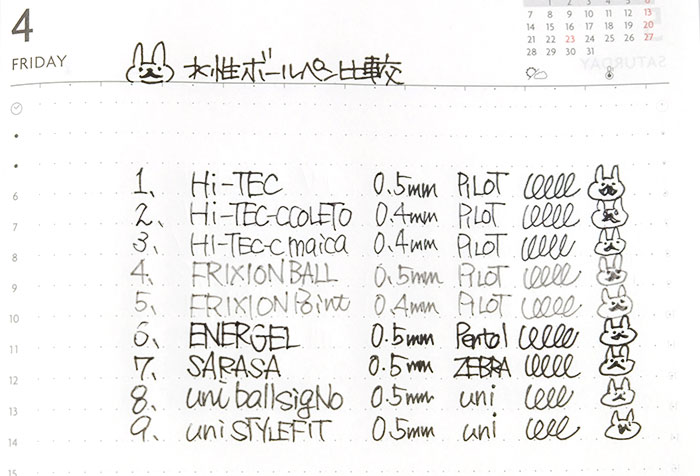 4
FRIDAY
水性ボールペン比較
6
7 8 9 10 11 12 13
14 15 16 17 18 19 20
21 22 23 24 25 26 27
28 29 30 31
SATURDAY
1、 Hi-TEC 0.5mm PiLOT
6
2、 Hi-TEC-CCOLETO 0.4mm PILOT
7
3、 HI-TEC-C maica 0.4mm PILOT
8
4、 FRIXION BALL 0.5mm PILOT
9
5、 FRIXION Point 0.4mm PILOT
10
6、 ENERGEL 0.5mm Pentel
11
7、 SARASA 0.5mm ZEBRA
12
8、 uni ball sigNo 0.5mm uni
13
9、 uni STYLEFIT 0.5mm uni
14
15